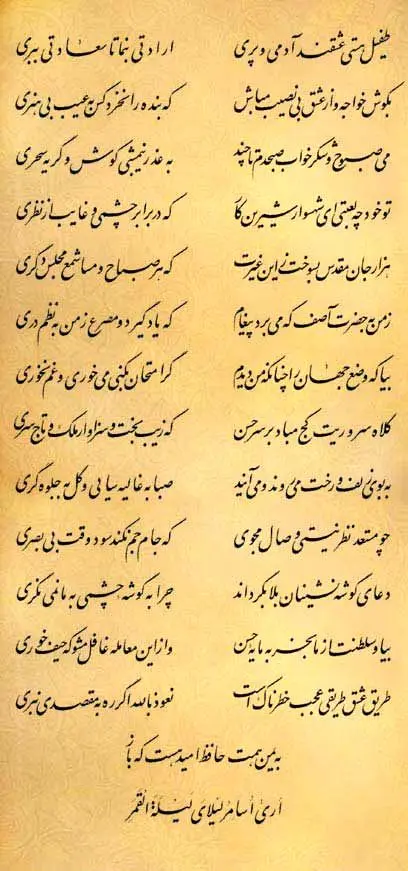 طفیل هستی عشقند آدمی و پری ارادتی بنما تا سعادتی ببری
بکوش خواجه و از عشق بی نصیب مباش که بنده را نخرد کس به عیب بی هنری
می صبوح و شکر خواب صبحدم تا چند به عذر نیمشبی کوش و گریه سحری
تو خود چه لعبتی ای شهسوار شیرین کار که در برابر چشمی و غایب از نظری
هزار جان مقدس بسوخت زین غیرت که هر صباح و مسا شمع مجلس دگری
ز من به حضرت آصف که می برد پیغام که یاد گیر دو مصرع ز من به نظم دری
بیا که وضع جهان را چنانکه من دیدم گر امتحان بکنی می خوری و غم نخوری
کلاه سروریت کج مباد بر سر حسن که زیب بخت و سزاوار ملک و تاج سری
به بوی زلف و رخت می روند و می آیند صبا به غالیه سایی و گل به جلوه گری
چو مستعد نظر نیستی وصال مجوی که جام جم نکند سود وقت بی بصری
دعای گوشه نشینان بلا بگرداند چرا به گوشه چشمی به ما نمی نگری
بیا و سلطنت از ما بخر به مایه حسن و از این معامله غافل مشو که حیف خوری
طریق عشق طریقی عجب خطرناک است نعوذ بالله اگر ره به مقصدی نبری
به یمن همت حافظ امید هست که باز
اری اسامر لیلای لیلة القمر